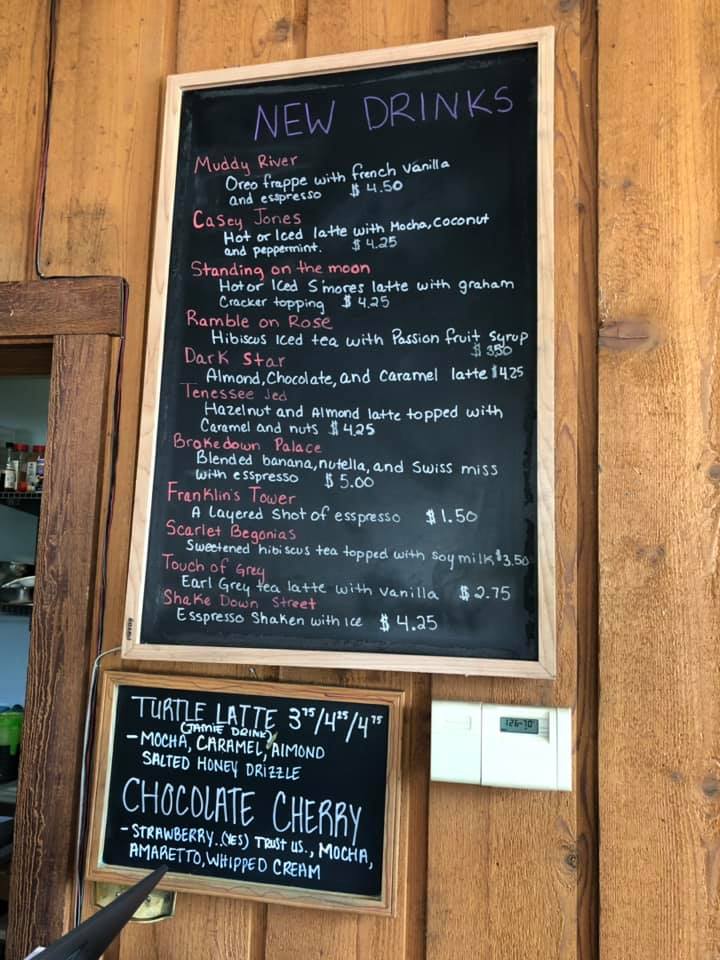 NEW DRINKS
Muddy River
Oreo frappe with french vanilla
and esspresso $4.50
Casey Jones
Hot or Iced latte with Mocha, coconut
and peppermint. $4.25
Standing on the moon
Hot or Iced S'mores latte with graham
Cracker topping $4.25
Ramble on Rose
Hibiscus Iced tea with Passion fruit syrup
$3.50
Dark Star
Almond, Chocolate, and Caramel latte $4.25
Tenessee Jed
Hazelnut and Almond latte topped with
Caramel and nuts $4.25
Brokedown Palace
Blended banana, nutella, and Swiss miss
with esspresso $5.00
Franklin's Tower
A Layered Shot of esspresso $1.50
Scarlet Begonias
Sweetened hibiscus tea topped with soy milk $3.50
Touch of Grey
Earl Grey tea latte with vanilla $2.75
Shake Down Street
Esspresso Shaken with Ice $4.25
TURTLE LATTE 3.75/4.25/4.75
(JAMIE DRINK)
- MOCHA, CARAMEL, AlMOND
SALTED HONEY DRIZZLE
CHOCOLATE CHERRY
- STRAWBERRY..(YES) TRUST US., MOCHA,
AMARETTO, WHIPPED CREAM